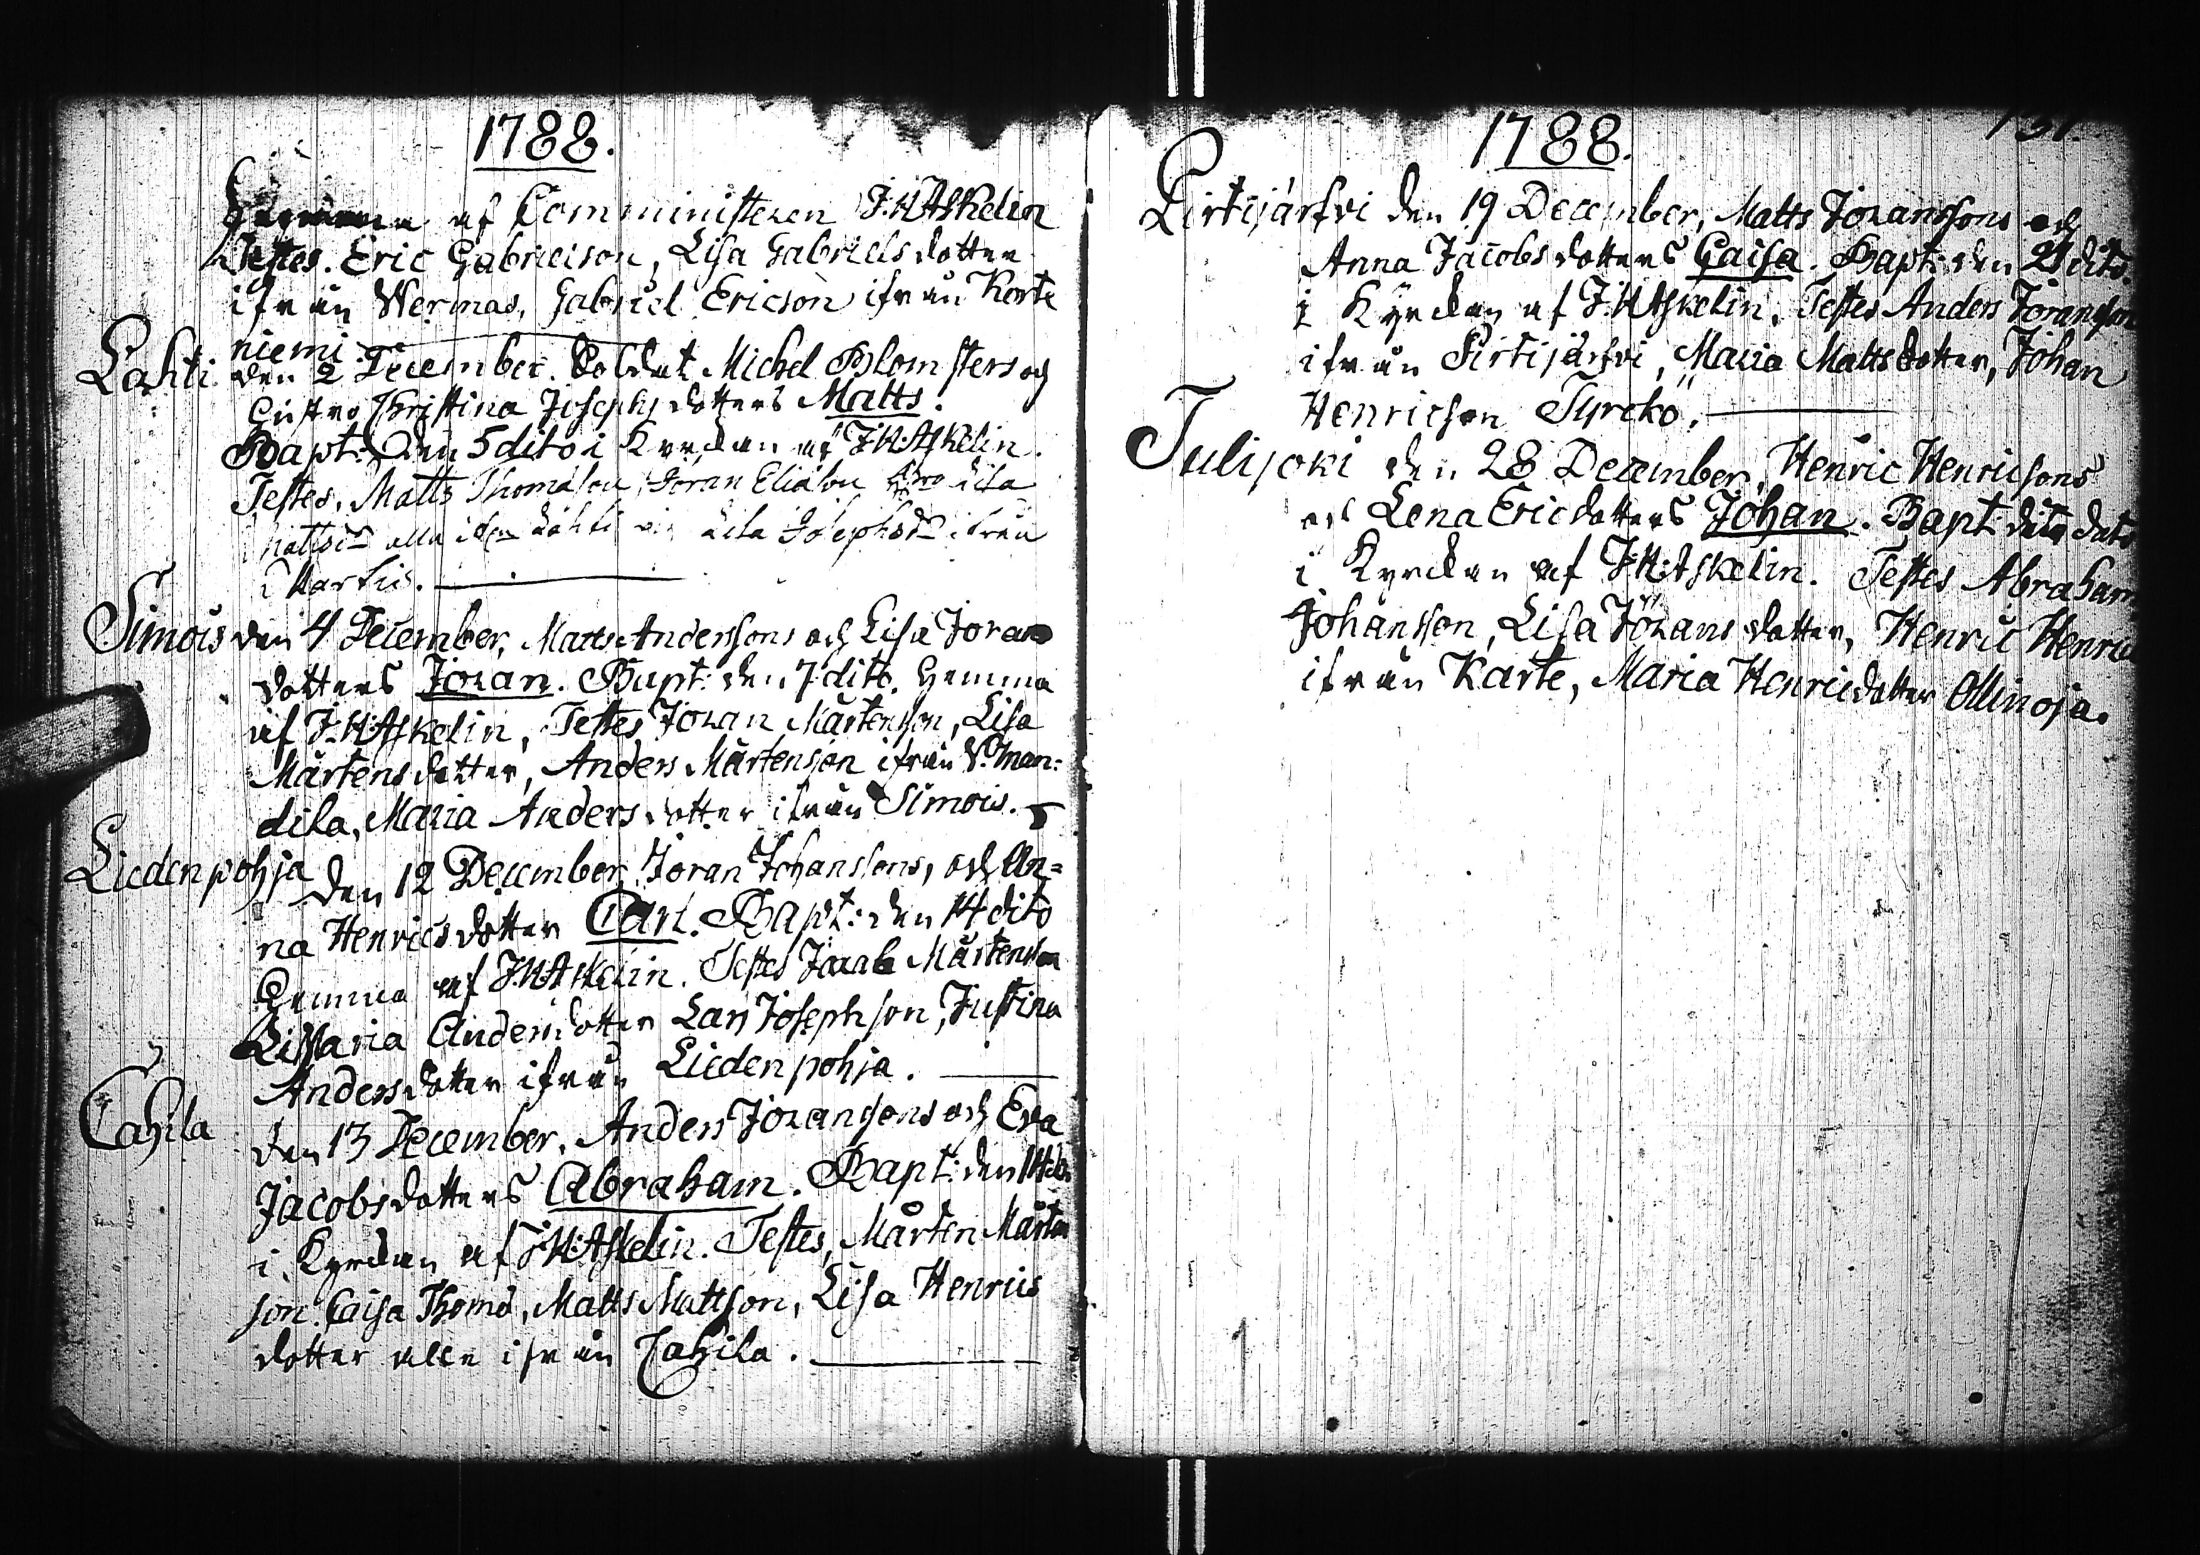 1788.
Hemma af Comministeren J:H:Askelin
Testes. Eric Gabrielson, Lisa Gabrielsdotter
ifrån Wermas, Gabriel Ericson ifrån Korte
niemi.
Lahti den 2 December. Soldat Michel Blomsters och
hustro Christina Josephsdotters Matts.
Bapt: den 5 dito i Kyrckan af J:H:Askelin.
Testes, Matts Thomason, Jöran Eliason Lisa
Mattsd:r alla ifrån Lahti Lisa Josephsd:r ifrån
Martis.
Simois den 4 December, Matts Anderssons och Lisa Jorans
dotters Joran. Bapt: den 7 dito. Hemma
af J:H:Askelin, Testes Joran Mårtensson, Lisa
Mårtensdotter, Anders Mårtenson ifrån V. Man:
dila, Maria Andersdotter ifrån Simois.
Liedenpohja den 12 December Joran Johanssons, och An=
na Henricsdotter Carl. Bapt: den 14 dito
Hemma af J:H:Askelin. Testes Mårtenson
Maria Andersdotter Lars Josephson, Justina
Andersdotter ifrån Liedenpohja.
Cahila den 13 December. Anders Joransons och Eva
Jacobsdotters Abraham. Bapt: den 14 do
i Kyrckan af J:H:Askelin. Testes, Mårten Mårten
son. Caisa Thomd, Matts Mattson, Lisa Henrics
dotter alle ifrån Cahila.
1788.
131.
Pirtijärfvi den 19 December, Matts Joranssons och
Anna Jacobsdotters Caisa. Bapt: den 21 dito.
i Kyrckan af J:H:Askelin, Testes Anders Joranson
ifrån Pirtijärfvi, Maria Mattsdotter, Johan
Henricson Tyrckö.
Julijoki den 28 December, Henric Henricsons
och Lena Ericdotters Johan. Bapt: dito dato
i Kyrckan af J:H:Askelin. Testes Abraham
Johansson, Lisa Jöransdotter, Henric Henric
ifrån Karte, Maria Henricdotter Ollinoja.